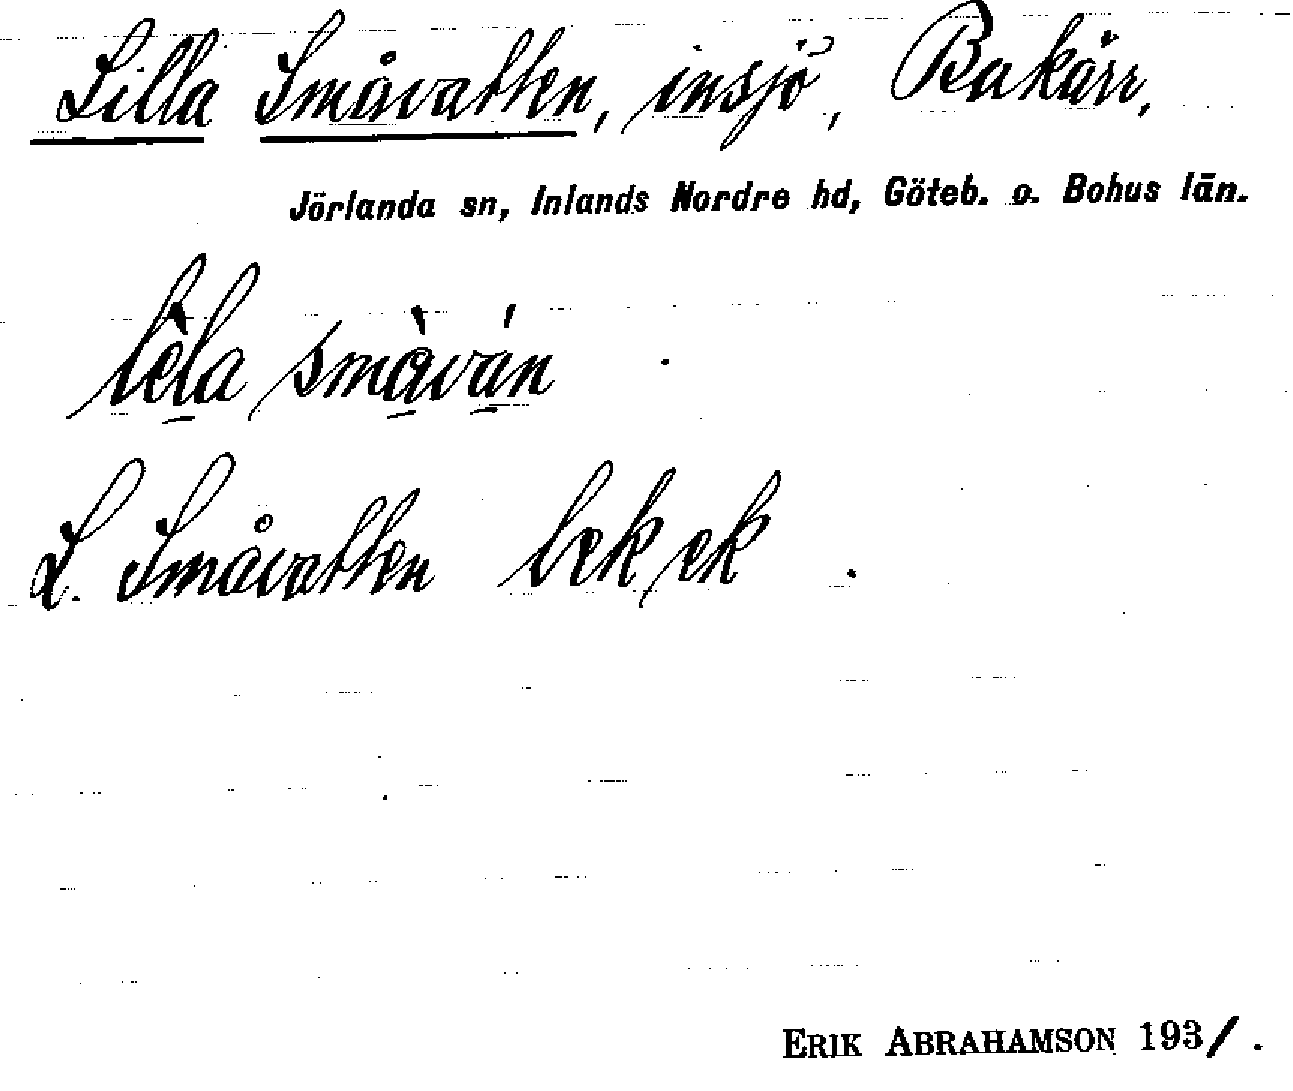 Lilla Småvatten, insjö, Bakärr,
Jörlanda sn, Inlands Nordre hd, Göteb. o. Bohus län.
lèla smàván
L. Småvatten ek ek
ERIK ABRAHAMSON 1931.